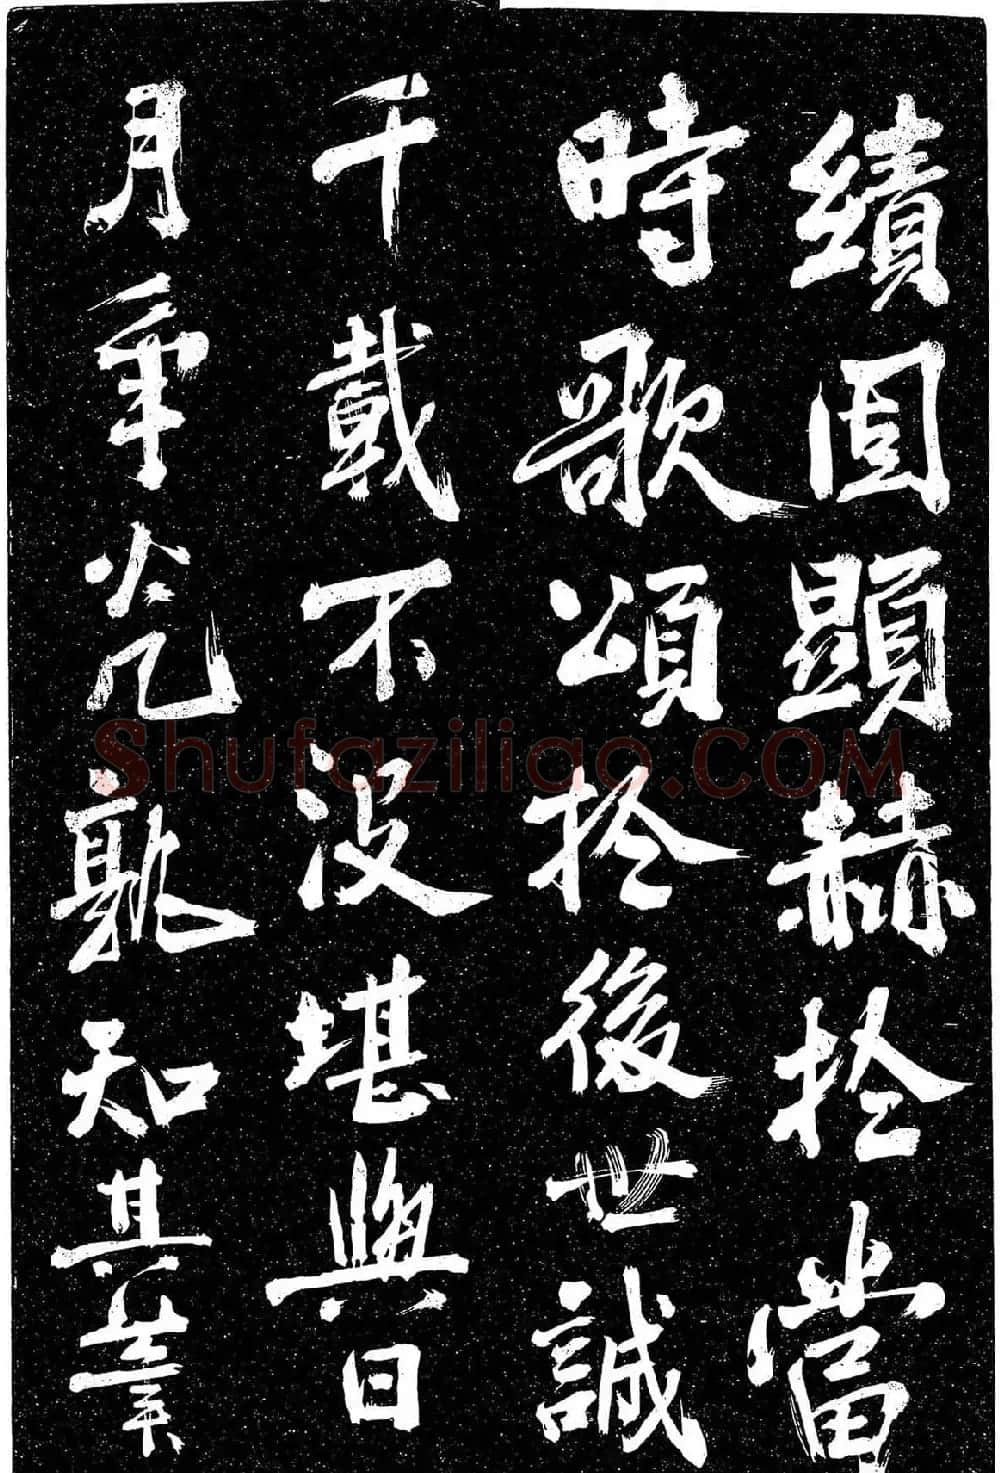 績固顯赫於當
時歌頌於後世誠
千載不没堪與日
月爭光孰知其業
Shufaziliao.COM